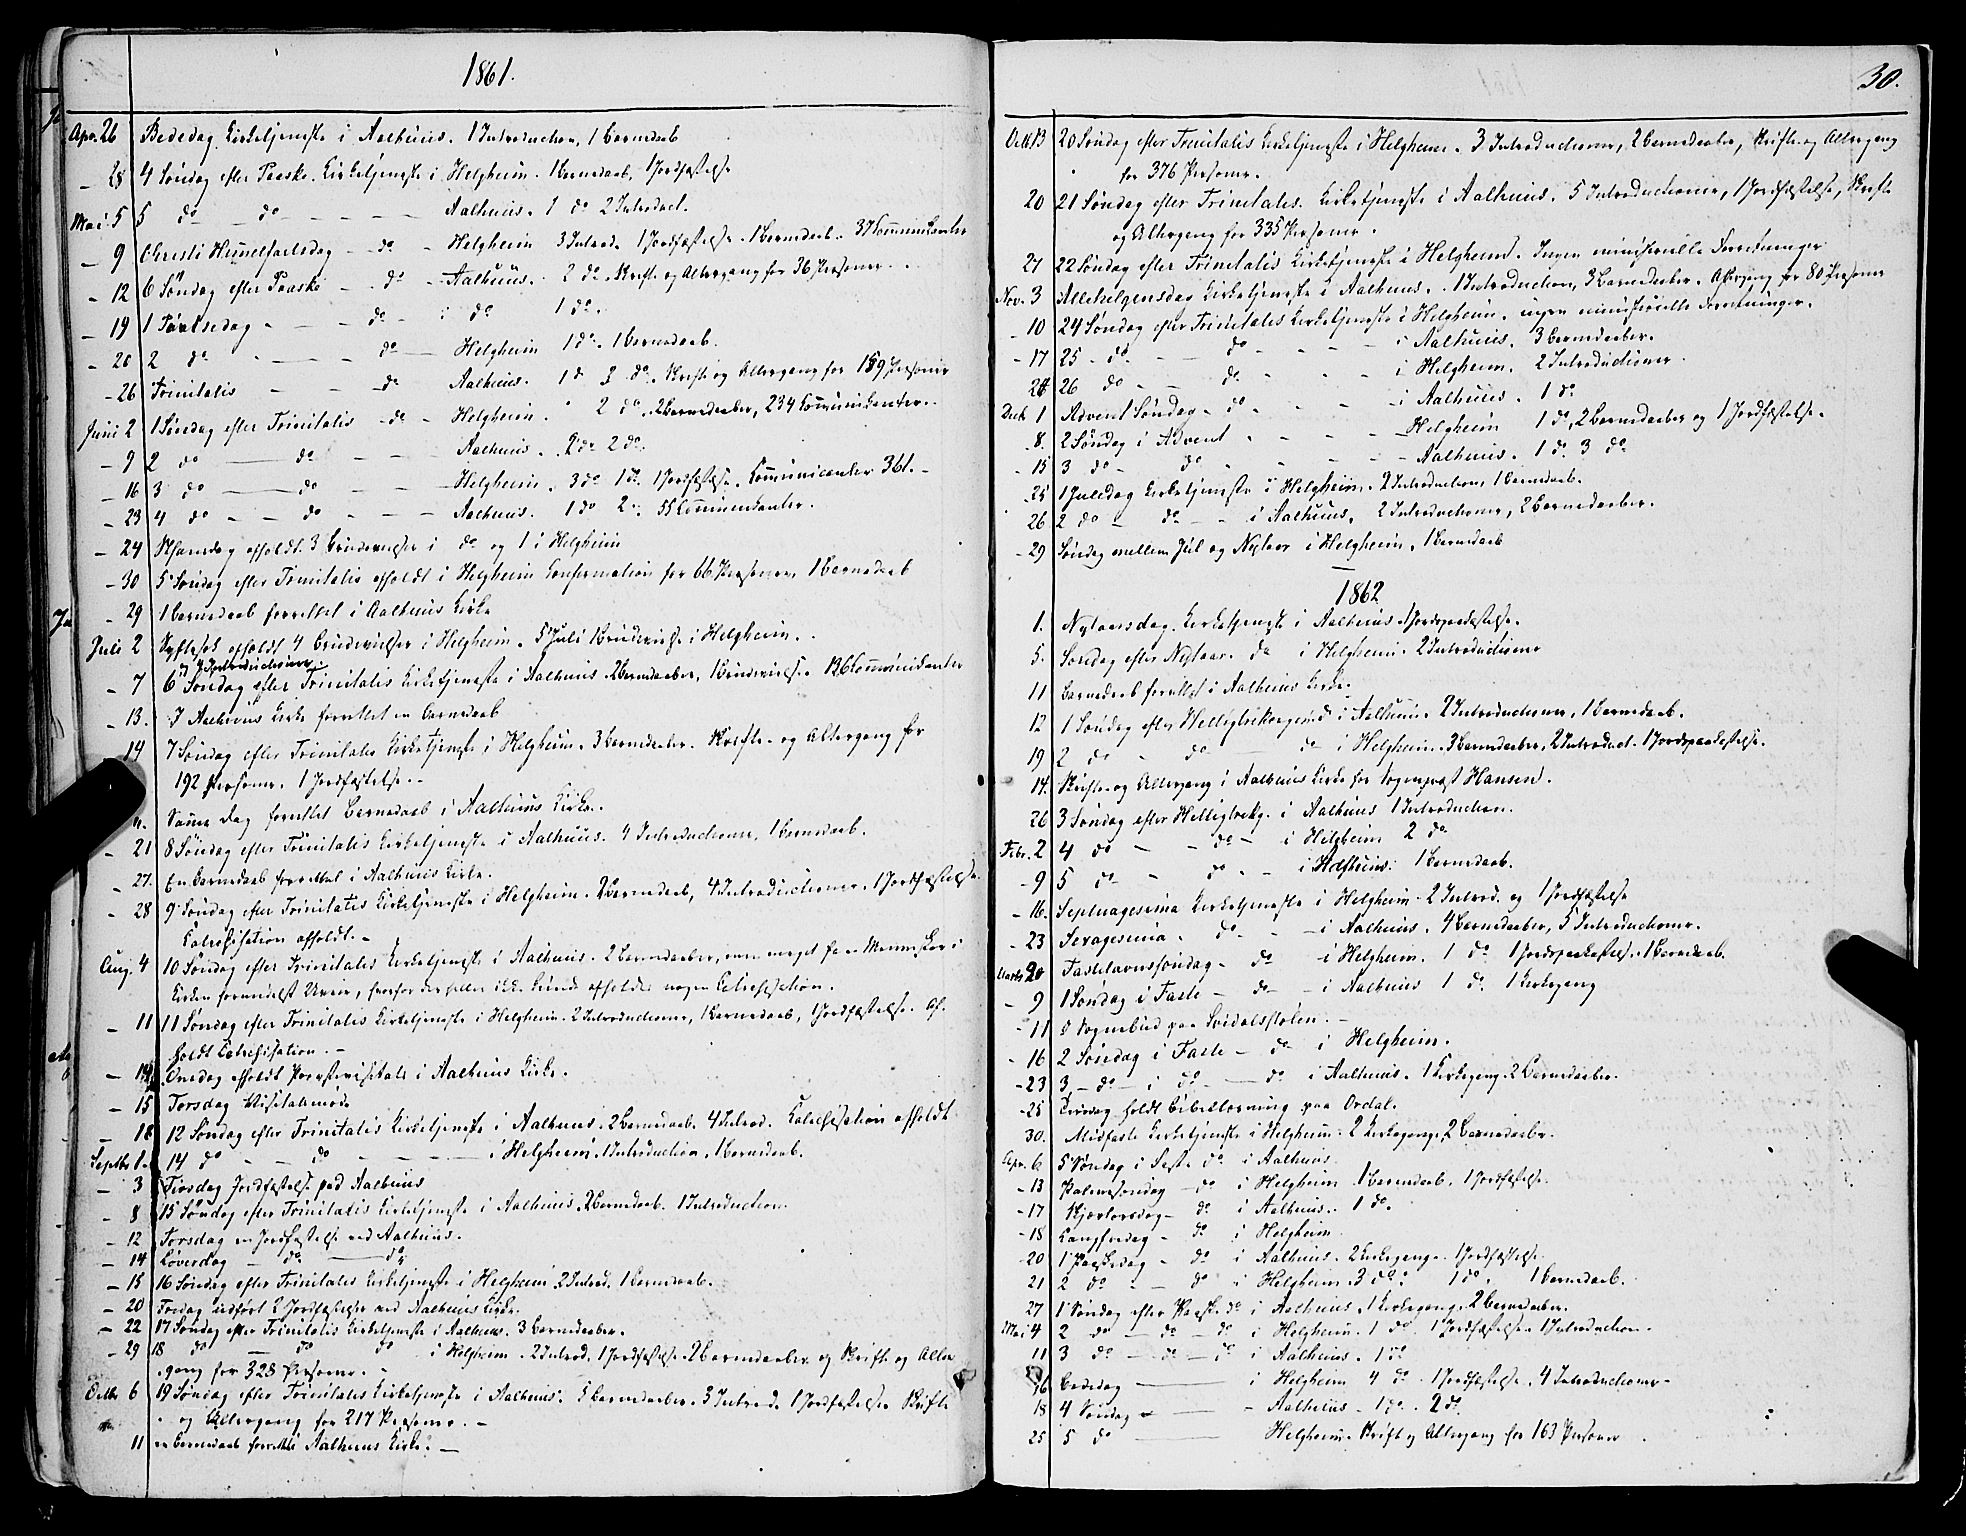 1861.
Apr. 26 Bededag Kirketjeneste i Aalhuus. 1 Introduction, 1 Barnedaab
– 28 4 Søndag efter Paaske. Kirketjeneste i Helgheim. 1 Barnedaab, 1 Jordfæstelse
Mai 5 5 do do – – – – Aalhuus. 1 do 2 Introduct.
– 9 Christi Himmelfartsdag – do – Helgheim 3 Introd. 1 Jordfæstelse. 1 Barnedaab. 37 Communicanter
– 12 6 Søndag efter Paaske – do – Aalhuus. 2 do. Skrifte og Altergang for 36 Personer.
– 19 1 Pintsedag – – – do – do 1 do.
– 20 2 do – – – do – Helgheim 1 do. 1 Barnedaab.
– 26 Trinitatis – – – do Aalhuus. 1 d 3 do. Skrifte og Altergang for 189 Personer
Juni 2 1 Søndag efter Trinitatis – do – Helgheim. 2 do. 2 Barnedaaber, 234 Communicanter.
– 9 2 do – do – – – Aalhuus. 2 do 2 do.
– 16 3 do – do – – – Helgheim. 3 do 1 do. 1 Jordfæstelse. Communicanter 361.
– 23 4 do – – do – – – Aalhuus. 1 do 2 do. 55 Communicanter.
– 24 St. Hansdag afholdt 3 Brudevielser i do og 1 i Helgheim
– 30 5 Søndag efter Trinitatis afholdt i Helgheim Confirmation for 66 Personer, 1 Barnedaab
– 29 1 Barnedaab forrettet i Aalhuus Kirke
Juli 2 Syftesok afholdt 4 Brudevielser i Helgheim. 5 Juli 1 Brudevielse i Helgheim.
Introductioner.
– 7 6 Søndag efter Trinitatis Kirketjeneste i Aalhuus. 2 Barnedaaber, 1 Brudevielse. 136 Communicanter
– 13. I Aalhuus Kirke forrettet en Barnedaab
14 7 Søndag efter Trinitatis Kirketjeneste i Helgheim. 3 Barnedaaber. Skrifte- og Altergang for
192 Personer. 1 Jordfæstelse.
Samme Dag forrettet Barnedaab i Aalhuus Kirke.
– 21 8 Søndag efter Trinitatis Kirketjeneste i Aalhuus. 4 Introductioner, 1 Barnedaab.
– 27. En Barnedaab forrettet i Aalhuus Kirke.
– 28 9 Søndag efter Trinitatis Kirketjeneste i Helgheim. 2 Barnedaab, 4 Introductioner. 1 Jordfæstelse.
Catechisation afholdt.
Aug. 4 10 Søndag efter Trinitatis Kirketjeneste i Aalhuus. 2 Barnedaaber, men meget faa Mennesker i
Kirken formedelst Uveir, hvorfor der heller ikke kunde afholdes nogen Catechisation.
– 11 11 Søndag efter Trinitatis Kirketjeneste i Helgheim. 2 Introductioner, 1 Barnedaab, 1 Jordfæstelse. Af-
holdt Catechisation.
– 14 Onsdag afholdt Provstevisitats i Aalhuus Kirke.
– 15 Torsdag Visitatsmøde
– 18 12 Søndag efter Trinitatis Kirketjeneste i Aalhuus. 2 Barnedaab. 4 Introd. Catechisation afholdt.
Septbr. 1. 14 do – – do – – – i Helgheim. 1 Introduction, 1 Barnedaab.
– 3 Tirsdag Jordfæstelse ved Aalhuus
– 8 15 Søndag efter Trinitatis Kirketjeneste i Aalhuus. 2 Barnedaab. 1 Introduction
– 12 Torsdag en Jordfæstelse ved Aalhuus.
– 14 Løverdag – do – do
– 15 16 Søndag efter Trinitatis Kirketjeneste i Helgheim. 2 Introd. 1 Barnedaab.
– 20 Fredag udført 2 Jordfæstelser ved Aalhuus Kirke.
– 22 17 Søndag efter Trinitatis Kirketjeneste i Aalhuus. 3 Barnedaaber.
– 29 18 do – do do – i Helgheim. 2 Introd. 1 Jordfæstelse. 2 Barnedaaber og Skrift- og Alter
gang for 328 Personer.
Octbr 6 19 Søndag efter Trinitatis Kirketjeneste i Aalhuus. 5 Barnedaaber. 3 Introd. 1 Jordfæstelse Skrifte
og Altergang for 217 Personer.
11 en Barnedaab forrettet i Aalhuus Kirke.
30.
Oct. 13 20 Søndag efter Trinitatis Kirketjeneste i Helgheim. 3 Introductioner, 2 Barnedaaber, Skrifte- og Altergang
for 376 Personer.
20 21 Søndag efter Trinitatis. Kirketjeneste i Aalhuus. 5 Introductioner, 1 Jordfæstelse, Skrifte
og Altergang for 335 Personer.
27 22 Søndag efter Trinitatis Kirketjeneste i Helgheim. Ingen ministerielle Forretninger
Nov. 3 Allehelgensdag Kirketjeneste i Aalhuus. 1 Introduction, 3 Barnedaaber. Altergang for 80 Personer
– 10 24 Søndag efter Trinitatis Kirketjeneste i Helgheim. ingen ministerielle Forretninger.
– 17 25 do. – – do – – – i Aalhuus. 3 Barnedaaber.
24 26 do – – do – – – i Helgheim. 2 Introductioner.
Decb 1 Advent Søndag – do – – – i Aalhuus. 1 do
8. 2 Søndag i Advent – – – – Helgheim 1 do, 2 Barnedaaber og 1 Jordfæstelse.
– 15 3 do – do – – – – Aalhuus. 1 d. 3 do
– 25 1 Juledag Kirketjeneste i Helgheim. 2 Introduction, 1 Barnedaab.
26 2 do – do – – i Aalhuus. 2 Introductioner, 2 Barnedaaber.
– 29 Søndag mellem Jul og Nytaar i Helgheim. 1 Barnedaab
1862
1. Nytaarsdag. Kirketjeneste i Aalhuus. 1 Jordspaakastelse.
5. Søndag efter Nytaar. do i Helgheim. 2 Introductioner
11 Barnedaab forrettet i Aalhuus Kirke.
12 1 Søndag efter Helligtrekonger i Aalhuus. 2 Introductioner, 1 Barnedaab.
19 2 do – do – do i Helgheim. 3 Barnedaaber, 2 Introduct. 1 Jordspaakastelse.
14. Skrifte- og Altergang i Aalhuus Kirke for Sognepræst Hansen.
26 3 Søndag efter Helligtrekg. i Aalhuus 1 Introduction.
Febr. 2 4 do – – do – i Helgheim 2 do
– 9 5 do – do – – i Aalhuus. 1 Barnedaab.
– 16. Septuagesima Kirketjeneste i Helgheim. 2 Introd. og 1 Jordfæstelse
– 23 Sexagesima. do. – – i Aalhuus. 4 Barnedaaber, 5 Introductioner.
Marts 2 Fastelavnssøndag – do – i Helgheim. 1 do 1 Jordspaakastelse. 1 Barnedaab.
– 9 1 Søndag i Faste – do – i Aalhuus 1 do. 1 Kirkegang
– 11 Sognebud paa Svidalsstølen.
– 16 2 Søndag i Faste – do i Helgheim.
– 23 3 – do – i do – do i Aalhuus. 1 Kirkegang. 2 Barnedaaber.
– 25 holdt Bibellæsning paa Ordal.
30. Midfaste Kirketjeneste i Helgheim. 2 Kirkegang. 2 Barnedaaber.
Apr. 6 5 Søndag i Faste do i Aalhuus
– 13 Palmesøndag – do i Helgheim 1 Barnedaab. 1 Jordfæstelse.
– 17 Skjærtorsdag – do i Aalhuus. 1 do.
– 18 Langfredag – do i Helgheim
– 20 1 Paaskedag – do i Aalhuus. 2 Kirkegang. 1 Jordfæstelse.
21 2 do – – do i Helgheim. 3 do. 1 do. 1 Barnedaab.
27 1 Søndag efter Paaske do i Aalhuus, 1 Kirkegang. 2 Barnedaaber.
Mai 4 2 do – do – do i Helgheim. 1 do. 1 Jordfæstelse 1 Introduction.
11 3 do – do – do i Aalhuus. 1 do
16 Bededag – i Helgheim 4 do. 1 Jordfæstelse. 4 Introductioner.
18 4 Søndag – – Aalhuus. 1 do. 2 do.
25 5 do – Helgheim. Skrift og Altergang for 163 Personer